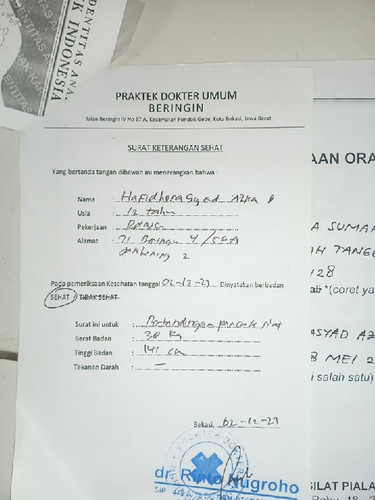 DENTITAS ANA
K INDONESIA
PRAKTEK DOKTER UMUM
BERINGIN
Jalan Beringin IV No 57 A, Kecamatan Pondok Gede, Kota Bekasi, Jawa Barat
SURAT KETERANGAN SEHAT
Yang bertanda tangan dibawah ini menerangkan bahwa :
Nama :
Usia : 12 tahun
Pekerjaan : Pelajar
Alamat : Jl Beringin 4
2
Pada pemeriksaan Kesehatan tanggal 02-12-23 Dinyatakan berbadan
SEHAT / TIDAK SEHAT
Surat ini untuk : Pertandingan pencak silat
Berat Badan : 38 Kg
Tinggi Badan : 141 cm
Tekanan Darah : —
Bekasi, 02-12-23
dr. Nugroho
SIP
AAN ORA
A SUMA
AH TANGG
128
air *(coret ya
ASYAD AZ
8 MEI 2
i salah satu)
SILAT PIALA